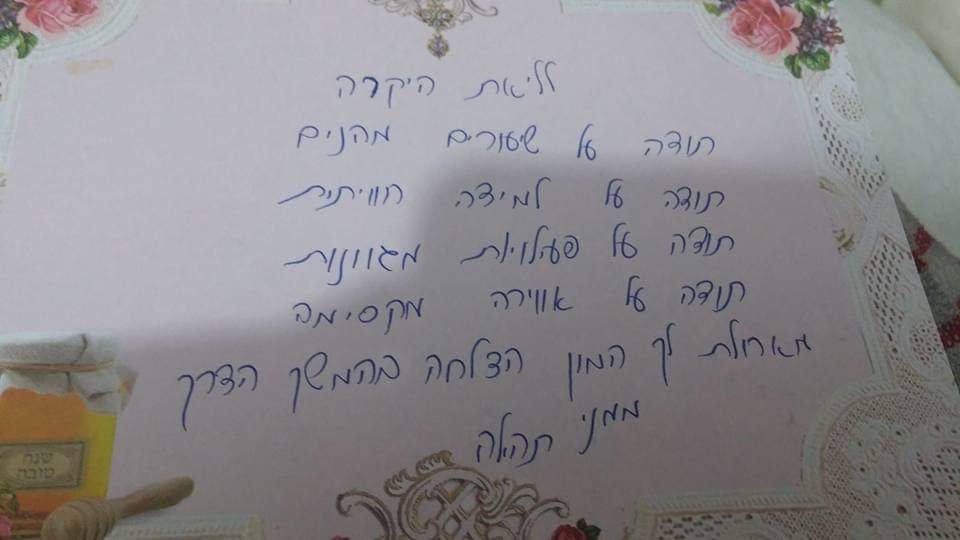 לליאת היקרה
תודה על שיעורים מהנים
תודה על למידה חוויתית
תודה על פעילויות מגוונות
תודה על אווירה מקסימה
מאחלת לך המון הצלחה בהמשך הדרך
ממני תהלה
שנה
טובה